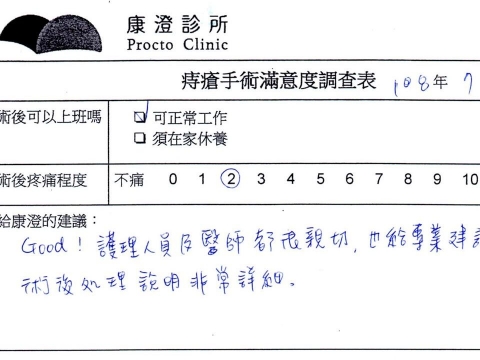 康澄診所
Procto Clinic
痔瘡手術滿意度調查表 108年 7
術後可以上班嗎 ☑ 可正常工作
☐ 須在家休養
術後疼痛程度 不痛 0 1 2 3 4 5 6 7 8 9 10
給康澄的建議：
Good！護理人員及醫師都很親切，也給專業建議
術後處理說明非常詳細。